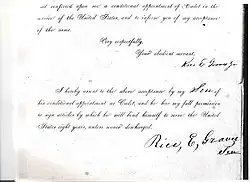 not conferred upon me a conditional appointment of Cadet in the
service of the United States, and to inform you of my acceptance
of the same.
Very respectfully,
Your obedient servant,
Rice E Graves Jr
I hereby assent to the above acceptance by my Son of
his conditional appointment as Cadet, and he has my full permission
to sign articles by which he will bind himself to serve the United
States eight years, unless sooner discharged.
Rice, E, Graves
Sen